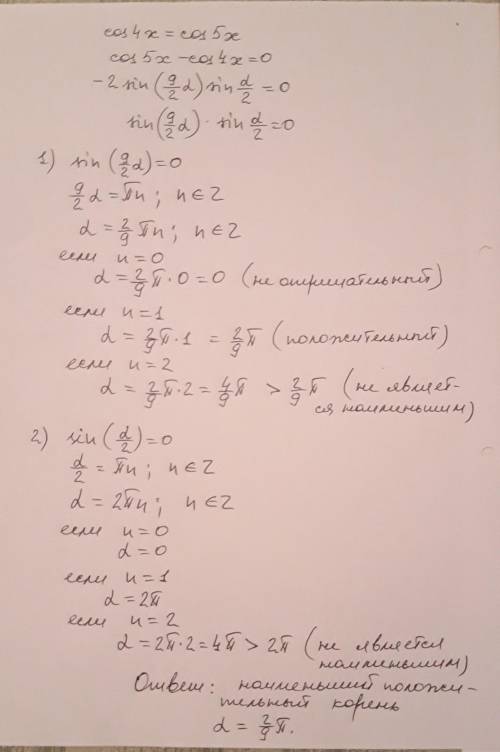 cos4x = cos5x
cos5x - cos4x = 0
-2sin(9/2 d) sin d/2 = 0
sin(9/2 d) · sin d/2 = 0
1) sin(9/2 d) = 0
9/2 d = πn; n ∈ Z
d = 2/9 πn; n ∈ Z
если n = 0
d = 2/9 π · 0 = 0 (не отрицательный)
если n = 1
d = 2/9 π · 1 = 2/9 π (положительный)
если n = 2
d = 2/9 π · 2 = 4/9 π > 2/9 π (не являет-
ся наименьшим)
2) sin(d/2) = 0
d/2 = πn; n ∈ Z
d = 2πn; n ∈ Z
если n = 0
d = 0
если n = 1
d = 2π
если n = 2
d = 2π · 2 = 4π > 2π (не является
наименьшим)
Ответ: наименьший положи-
тельный корень
d = 2/9 π.